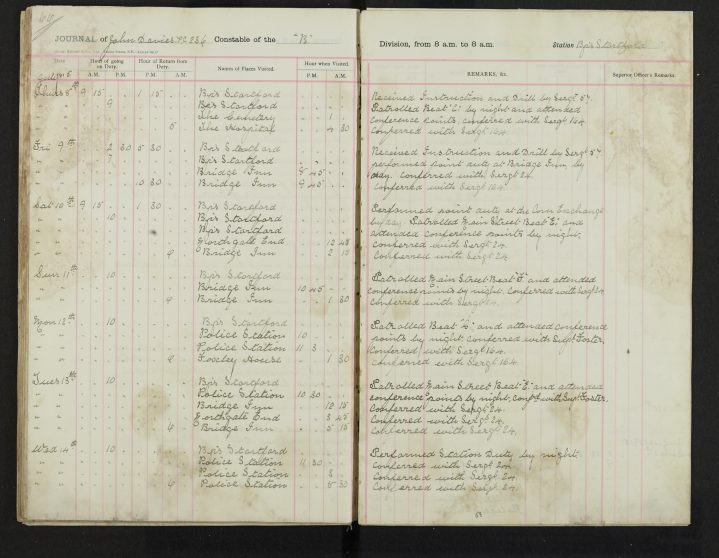 JOURNAL of John Davies P.C. 236 Constable of the "B"
Date
Hour of going on Duty.
Hour of Return from Duty.
Names of Places Visited.
Hour when Visited.
A.M. P.M. P.M. A.M. P.M. A.M.
Thurs 8th 9 15 1 15 Bp's Stortford
" " 9 Bp's Stortford
" " The Cemetery 1
" " 5 The Hospital 4 30
Fri 9th 2 30 5 30 Bp's Stortford
" " Bp's Stortford
" " Bridge Inn 8 45
" " 10 30 Bridge Inn 9 45
Sat 10th 9 15 1 30 Bp's Stortford
" " 10 Bp's Stortford
" " Bp's Stortford
" " Northgate End 12 45
" " Bridge Inn 2 15
Sun 11th 10 Bp's Stortford
" " Bridge Inn 10 45
" " Bridge Inn 1 30
Mon 12th 10 Bp's Stortford
" " Police Station 10
" " Police Station 11 3
" " Foxley House 1 30
Tues 13th 10 Bp's Stortford
" " Police Station 10 30
" " Bridge Inn 12 15
" " Northgate End 3 45
" " Bridge Inn 5 15
Wed 14th 10 Bp's Stortford
" " Police Station 11 30
" " Police Station
" " Police Station 5 30
Division, from 8 a.m. to 8 a.m. Station Bp's Stortford
REMARKS, &c.
Superior Officer's Remarks.
Received Instruction and Drill by Sergt 57.
Patrolled Beat and attended
conference points, conferred with Sergt 164
Conferred with Sergt 164.
Received Instruction and Drill by Sergt 57.
performed point duty at Bridge Inn, by
day. Conferred with Sergt 24.
Conferred with Sergt 164.
Performed point duty at the Corn Exchange
by day. Patrolled Main Street Beat "E" and
attended conference points by night.
Conferred with Sergt 24.
Conferred with Sergt 24.
Patrolled Main Street Beat and attended
conference points by night. Conferred with Sergt 24
Conferred with Sergt 24.
Patrolled Beat and attended conference
points by night. Conferred with Supt Foster.
Conferred with Sergt 164.
Conferred with Sergt 164.
Patrolled Main Street Beat and attended
conference points by night, Confd with Supt Foster.
Conferred with Sergt 24.
Conferred with Sergt 24.
Conferred with Sergt 24.
Performed Station Duty by night.
Conferred with Sergt 24.
Conferred with Sergt 24.
Conferred with Sergt 24.